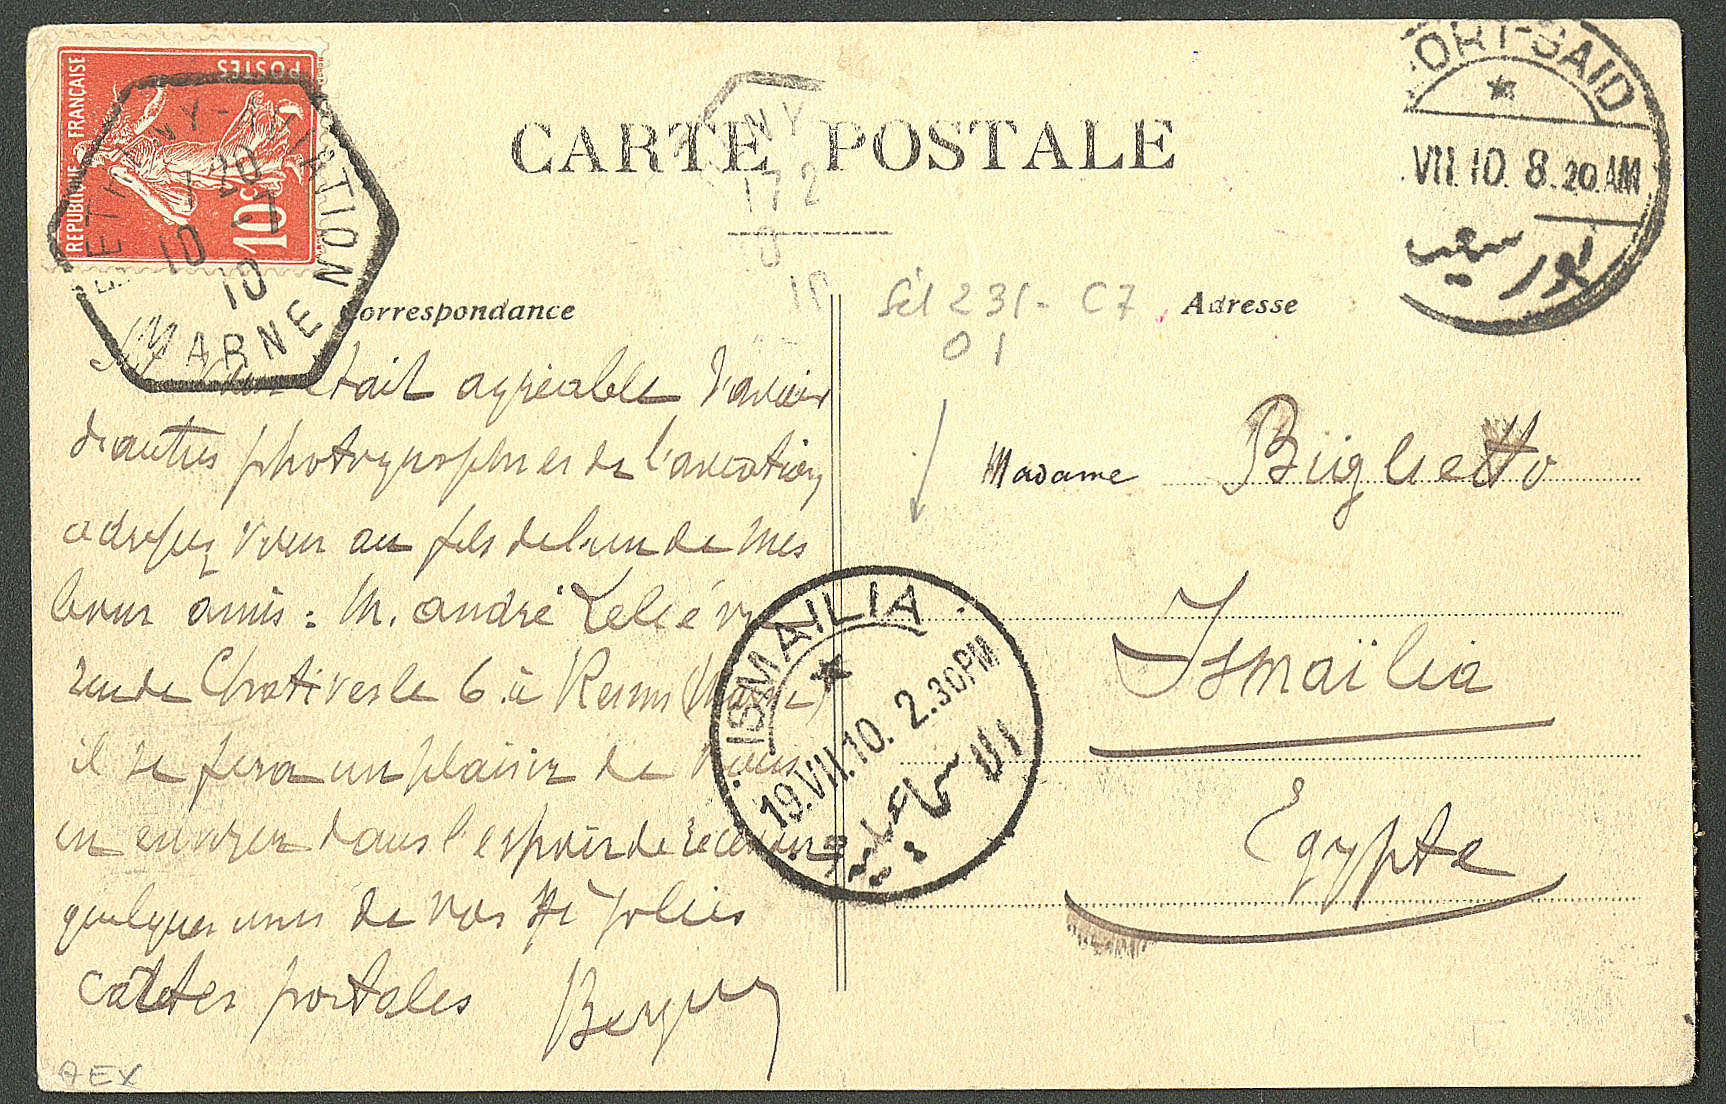 REPUBLIQUE FRANÇAISE
POSTES
10c
BETHENY-AVIATION
1 20
10 -7
10
MARNE
CARTE POSTALE
NY
172
8
10
PORT-SAID
VII.10. 8.20.AM
بور سعيد
Correspondance
Sél 231 - C7
01
Adresse
S'il vous était agréable d'avoir
d'autres photographies de l'aviation
adressez vous au fils de l'un de mes
bons amis : M. andré Lelièvre
rue de Chativesle 6 à Reims (Marne)
il se fera un plaisir de vous
en envoyer dans l'espoir de recevoir
quelques unes de vos si jolies
cartes postales
Madame Biglietto
Ismaïlia
Egypte
ISMAILIA
19.VII.10. 2.30PM
الاسماعيلية
AEX